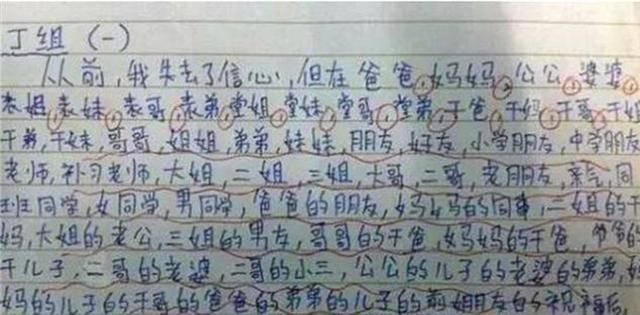 丁组（一）
从前,我失去了信心,但在爸爸,妈妈,公公,婆婆
表姐,表妹,表哥,表弟,堂姐,堂妹,堂哥,堂弟,干爸,干妈,干哥,干姐
干弟,干妹,哥哥,姐姐,弟弟,妹妹,朋友,好友,小学朋友,中学朋友
老师,补习老师,大姐,二姐,三姐,大哥,二哥,老朋友,亲戚,同
班同学,女同学,男同学,爸爸的朋友,妈妈的同事,二姐的干
妈,大姐的老公,三姐的男友,哥哥的干爸,妈妈的干爸,
干儿子,二哥的老婆,二哥的小三,公公的儿子的老婆的弟弟,妈
妈的儿子的干哥的爸爸的弟弟的儿子的前女朋友的祝福后,